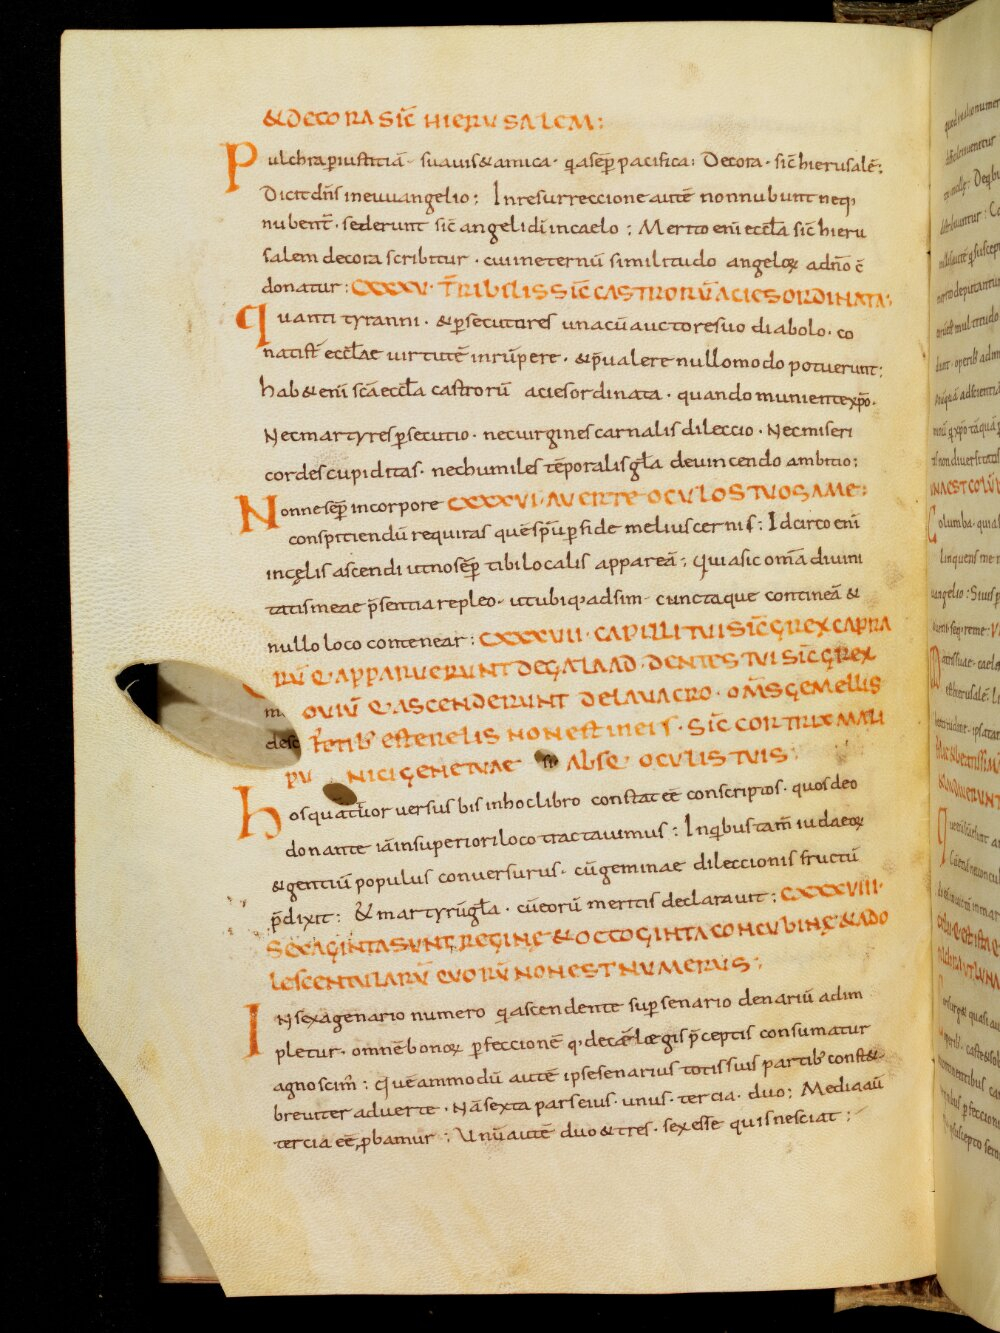 & DECORA SIC̄ HIERUSALEM:
Pulchra p̱ iustitiā · suavis & amica · q̱ asēp pacifica: Decora · sic̄ hierusalē:
Dicit dn̄s in euuangelio: In resurreccione autē non nubunt neq;
nubent̄ · sed erunt sic̄ angeli dī in caelo: Merito enī eccl̄a sic̄ hieru
salem decora scribitur · cui in eternū similitudo angeloꝝ ad dn̄o ē
donatur: CXXXV · T̄RIBILIS SIC̄ CASTRORŪ ACIES ORDINATA:
Quanti tyranni · & p̱secutores una cū auctore suo diabolo · co
nati st̄ eccl̄ae virtutē inrūpere · & p̄ualere nullomodo potuerunt:
hab& enī sc̄a eccl̄a castrorū acies ordinata · quando muniente xp̄o ·
Nec martyres p̱secutio · nec virgines carnalis dileccio · Nec miseri
cordes cupiditas · nec humiles tēporalis gl̄a deuincendo ambitio:
Non me sēp in corpore CXXXVI · AVERTE OCULOS TUOS A ME:
conspiciendū requiras quē sp̄u p̱ fide melius cernis: Idcirco enī
in cęlis ascendi ut no sēp tibi localis appareā: Qui a sic om̄a divini
tatis meae p̄sentia repleo · ut ubiq; adsim · cunctaque contineā &
nullo loco contenear: CXXXVII · CAPILLI TUI SIC̄ GREX CAPRA
RŪ Q̄ APPARUERUNT DE GALAAD · DENTES TUI SIC̄ GREX
OVIŪ Q̄ ASCENDERUNT DE LAVACRO · OM̄S GEMELLIS
FETIB; ET STERELIS NON EST IN EIS · SIC̄ CORTRIX MALI
PU NICI GENE TUAE ABSQ; OCULIS TUIS:
hos quattuor versus bis in hoc libro constat eē conscriptos · quos deo
donante iā in superiori loco tractavimus: In q̱bus tam̄ iudaeoꝝ
& gentiū populus conversurus · cū geminae dileccionis fructū
p̄dixit: & martyrū gl̄a · cū eorū meritis declaravit: CXXXVIII ·
SEXAGINTA SUNT REGINĘ & OCTOGINTA CONCUBINĘ & ADO
LESCENTULARŪ QUORŪ NON EST NUMERUS:
In sexagenario numero q̱ ascendente sup̱ senario denariū adim
pletur · omnē bonoꝝ p̱feccionē q̱ decē lęgis p̄ceptis consumatur
agnoscim̄: Quēammodū autē ipse senarius totis suis partib; const& ·
breviter adverte · Nā sexta pars eius · unus · tercia · duo: Media aū
tercia eē p̱bamur: Unū autē duo & tres · sex esse quis nesciat: